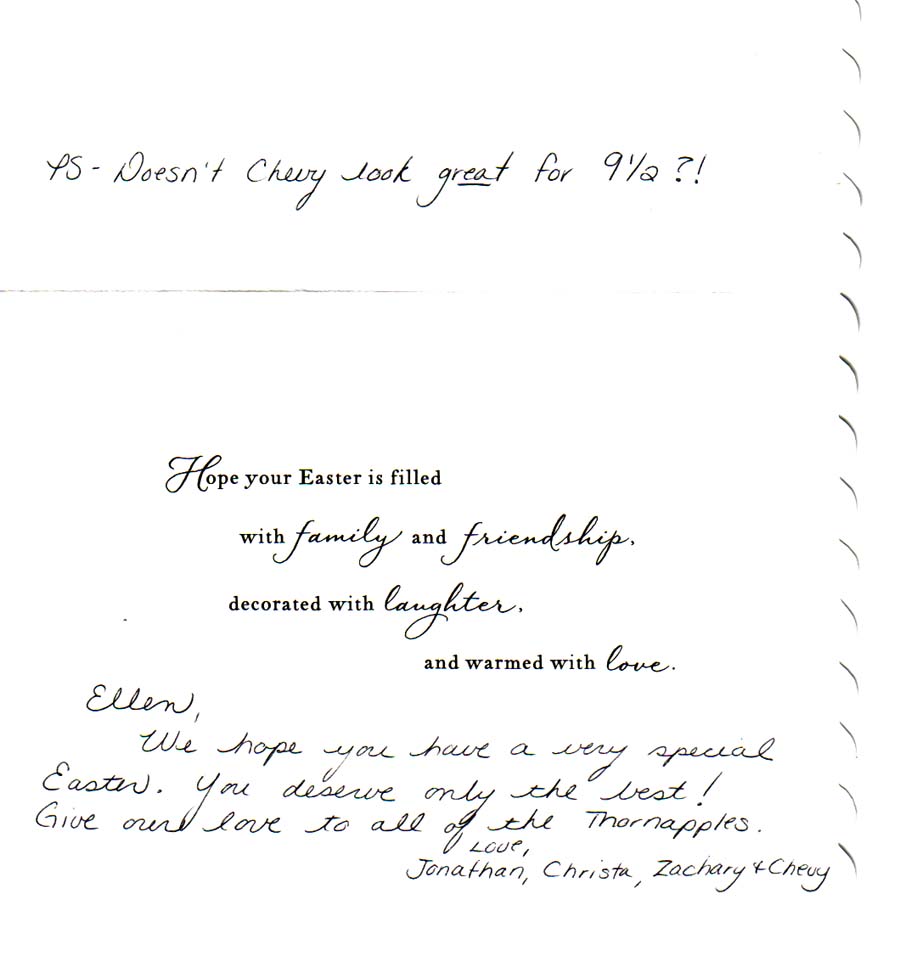 PS - Doesn't Chevy look great for 9 1/2 ?!
Hope your Easter is filled
with family and friendship,
decorated with laughter,
and warmed with love.
Ellen,
We hope you have a very special
Easter. You deserve only the best!
Give our love to all of the Thornapples.
Love,
Jonathan, Christa, Zachary & Chevy